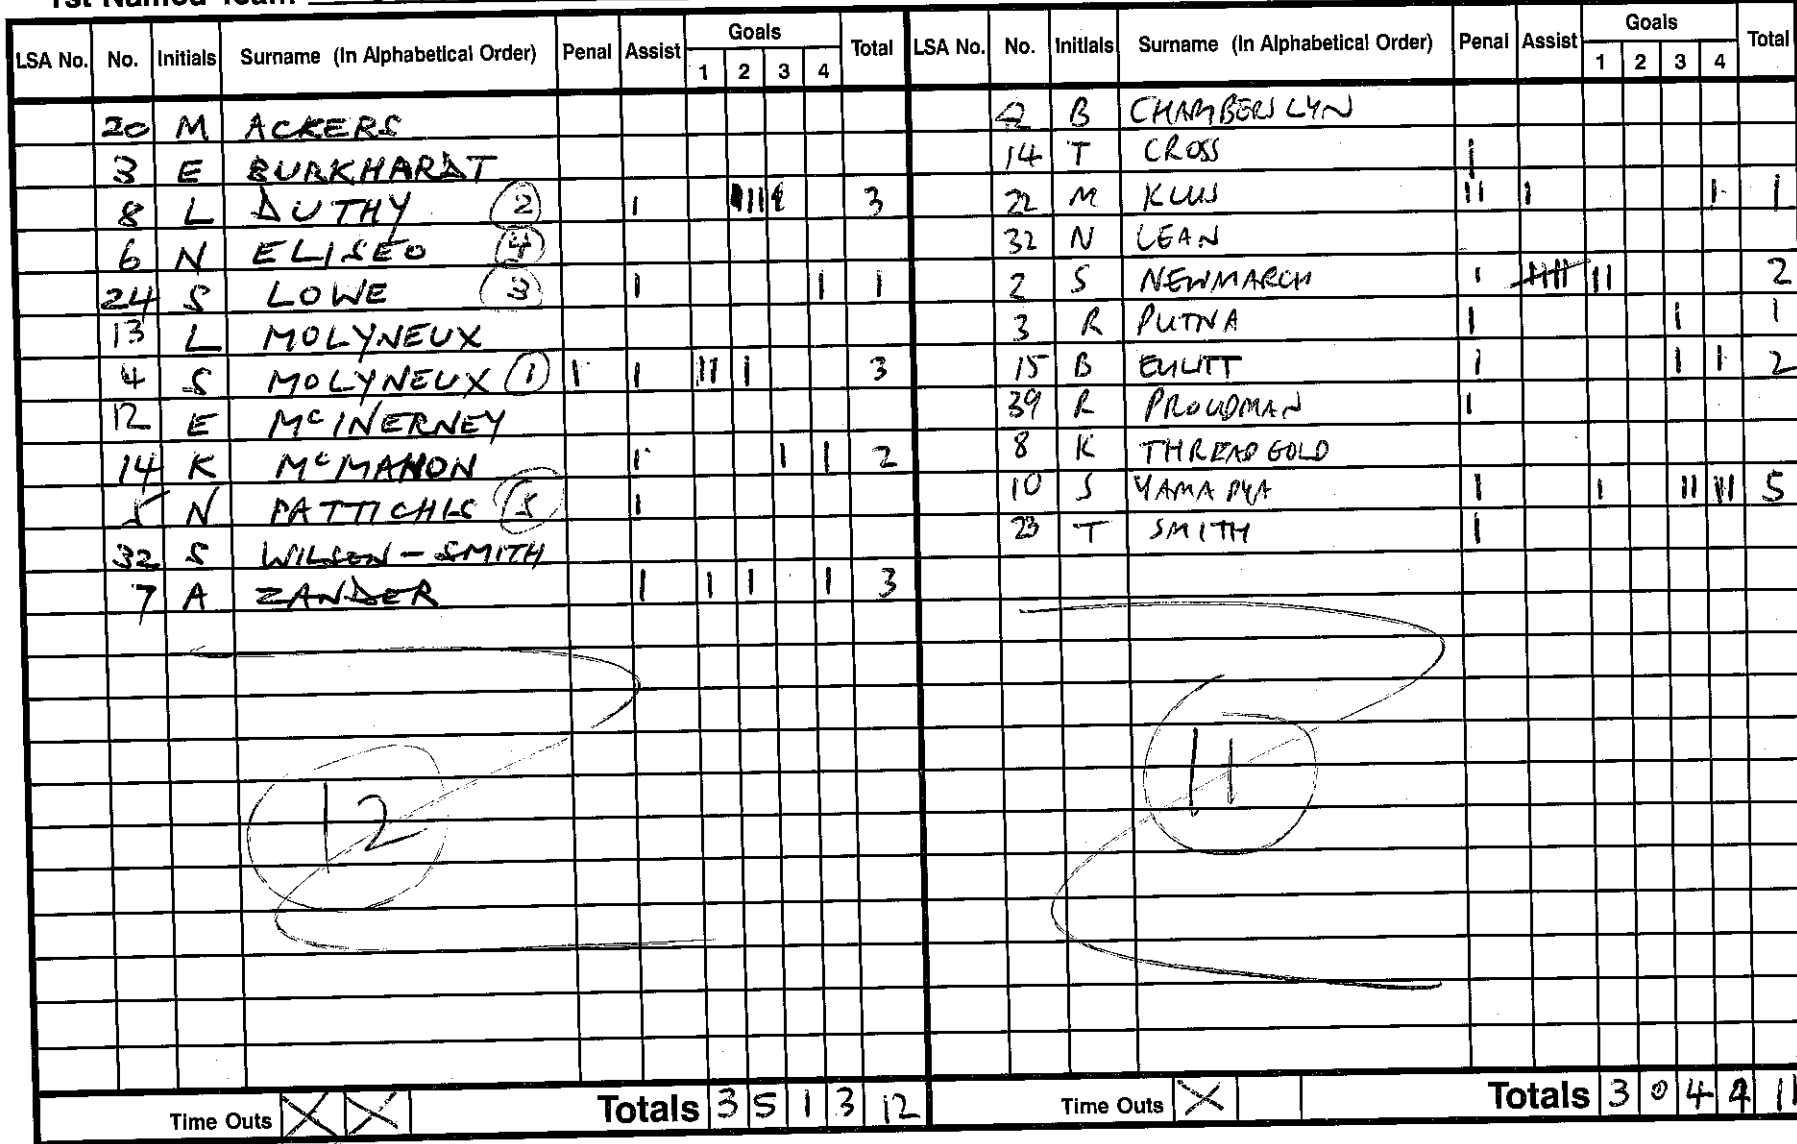 LSA No. No. Initials Surname (In Alphabetical Order) Penal Assist Goals 1 2 3 4 Total
20 M ACKERS
3 E BURKHARDT
8 L DUTHY 2 3
6 N ELISEO 4
24 S LOWE 3 1 1 1
13 L MOLYNEUX
4 S MOLYNEUX 1 1 1 11 1 3
12 E McINERNEY
14 K McMAHON 1 1 1 2
5 N PATTICHLS 5 1
32 S WILSON-SMITH
7 A ZANDER 1 1 1 1 3
12
Time Outs X X Totals 3 5 1 3 12
LSA No. No. Initials Surname (In Alphabetical Order) Penal Assist Goals 1 2 3 4 Total
B CHAMBERSLYN
14 T CROSS 1
22 M KLUS 11 1 1 1
32 N LEAN
2 S NEWMARCH 1 11 2
3 R PUTNA 1 1 1
15 B 1 1 1 2
39 R PROUDMAN 1
8 K THREADGOLD
10 S 1 1 11 11 5
23 T SMITH 1
11
Time Outs X Totals 3 0 4 11